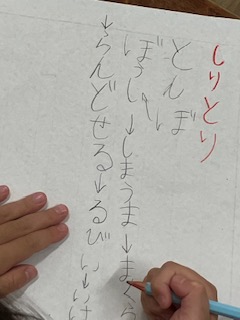 しりとり
とんぼ
ぼうし↓しまうま↓まくら
↓らんどせる↓るびい↓いけ